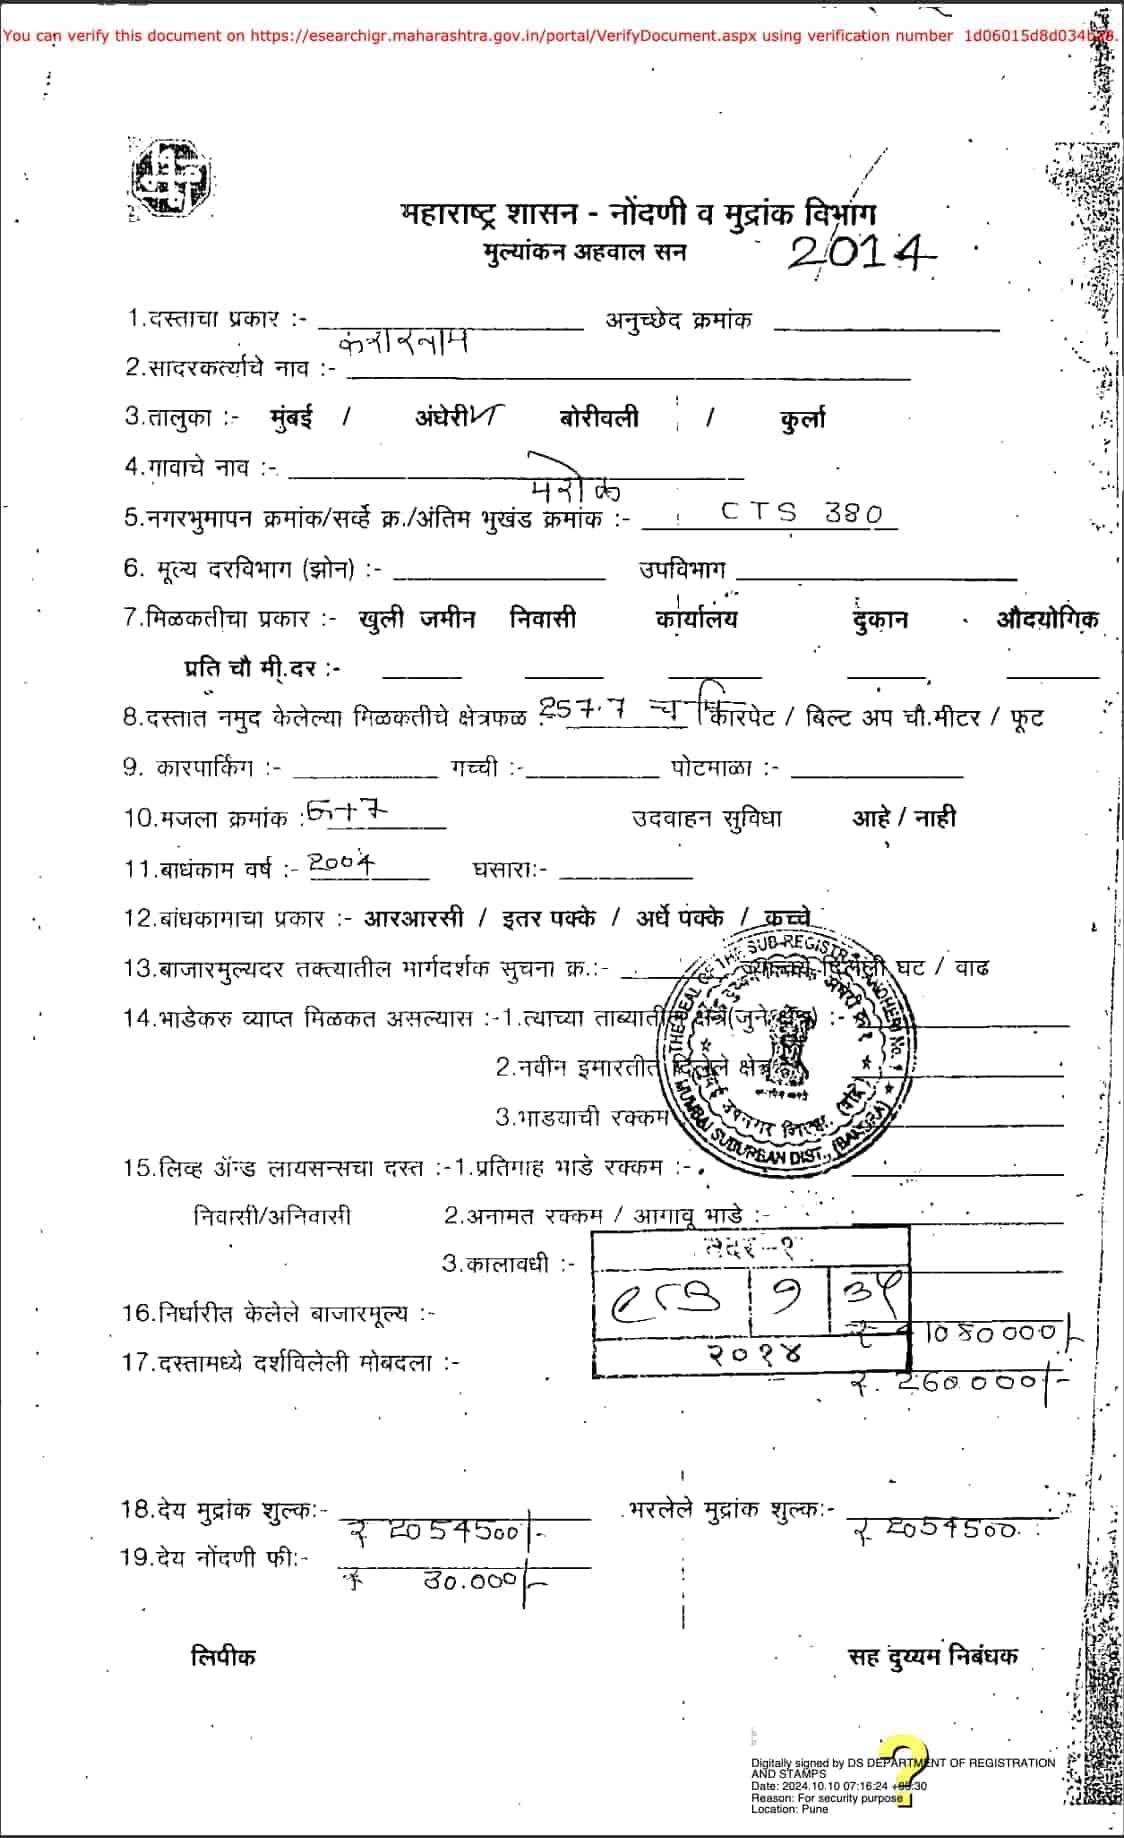 You can verify this document on https://esearchigr.maharashtra.gov.in/portal/VerifyDocument.aspx using verification number 1d06015d8d034
महाराष्ट्र शासन - नोंदणी व मुद्रांक विभाग
मुल्यांकन अहवाल सन 2014
1.दस्ताचा प्रकार :- करारनामा अनुच्छेद क्रमांक
2.सादरकर्त्याचे नाव :-
3.तालुका :- मुंबई / अंधेरी बोरीवली / कुर्ला
4.गावाचे नाव :- मरोळ
5.नगरभुमापन क्रमांक/सर्व्हे क्र./अंतिम भुखंड क्रमांक :- CTS 380
6. मूल्य दरविभाग (झोन) :- उपविभाग
7.मिळकतीचा प्रकार :- खुली जमीन निवासी कार्यालय दुकान औदयोगिक
प्रति चौ मी.दर :-
8.दस्तात नमुद केलेल्या मिळकतीचे क्षेत्रफळ :- 257.7 कारपेट / बिल्ट अप चौ.मीटर / फूट
9. कारपार्किंग :- गच्ची :- पोटमाळा :-
10.मजला क्रमांक : 6+7 उदवाहन सुविधा आहे / नाही
11.बाधंकाम वर्ष :- 2004 घसारा:-
12.बांधकामाचा प्रकार :- आरआरसी / इतर पक्के / अर्धे पक्के / कच्चे
13.बाजारमुल्यदर तक्त्यातील मार्गदर्शक सुचना क्र.:- दिलेली घट / वाढ
14.भाडेकरु व्याप्त मिळकत असल्यास :-1.त्याच्या ताब्यातील क्षेत्र(जुने क्षेत्र) :-
2.नवीन इमारतीत दिलेले क्षेत्र
3.भाडयाची रक्कम
THE SEAL OF THE SUB-REGISTRAR ANDHERI No. 1
MUMBAI SUBURBAN DIST., (BANDRA)
15.लिव्ह ॲन्ड लायसन्सचा दस्त :-1.प्रतिमाह भाडे रक्कम :-
निवासी/अनिवासी 2.अनामत रक्कम / आगावू भाडे :-
3.कालावधी :-
वदर-१
१ ३५
२०१४
16.निर्धारीत केलेले बाजारमूल्य :-
17.दस्तामध्ये दर्शविलेली मोबदला :-
18.देय मुद्रांक शुल्क:- ₹ 2054500/- भरलेले मुद्रांक शुल्क:- ₹ 2054500
19.देय नोंदणी फी:- ₹ 30.000/-
लिपीक सह दुय्यम निबंधक
Digitally signed by DS DEPARTMENT OF REGISTRATION
AND STAMPS
Date: 2024.10.10 07:16:24 +05:30
Reason: For security purpose
Location: Pune